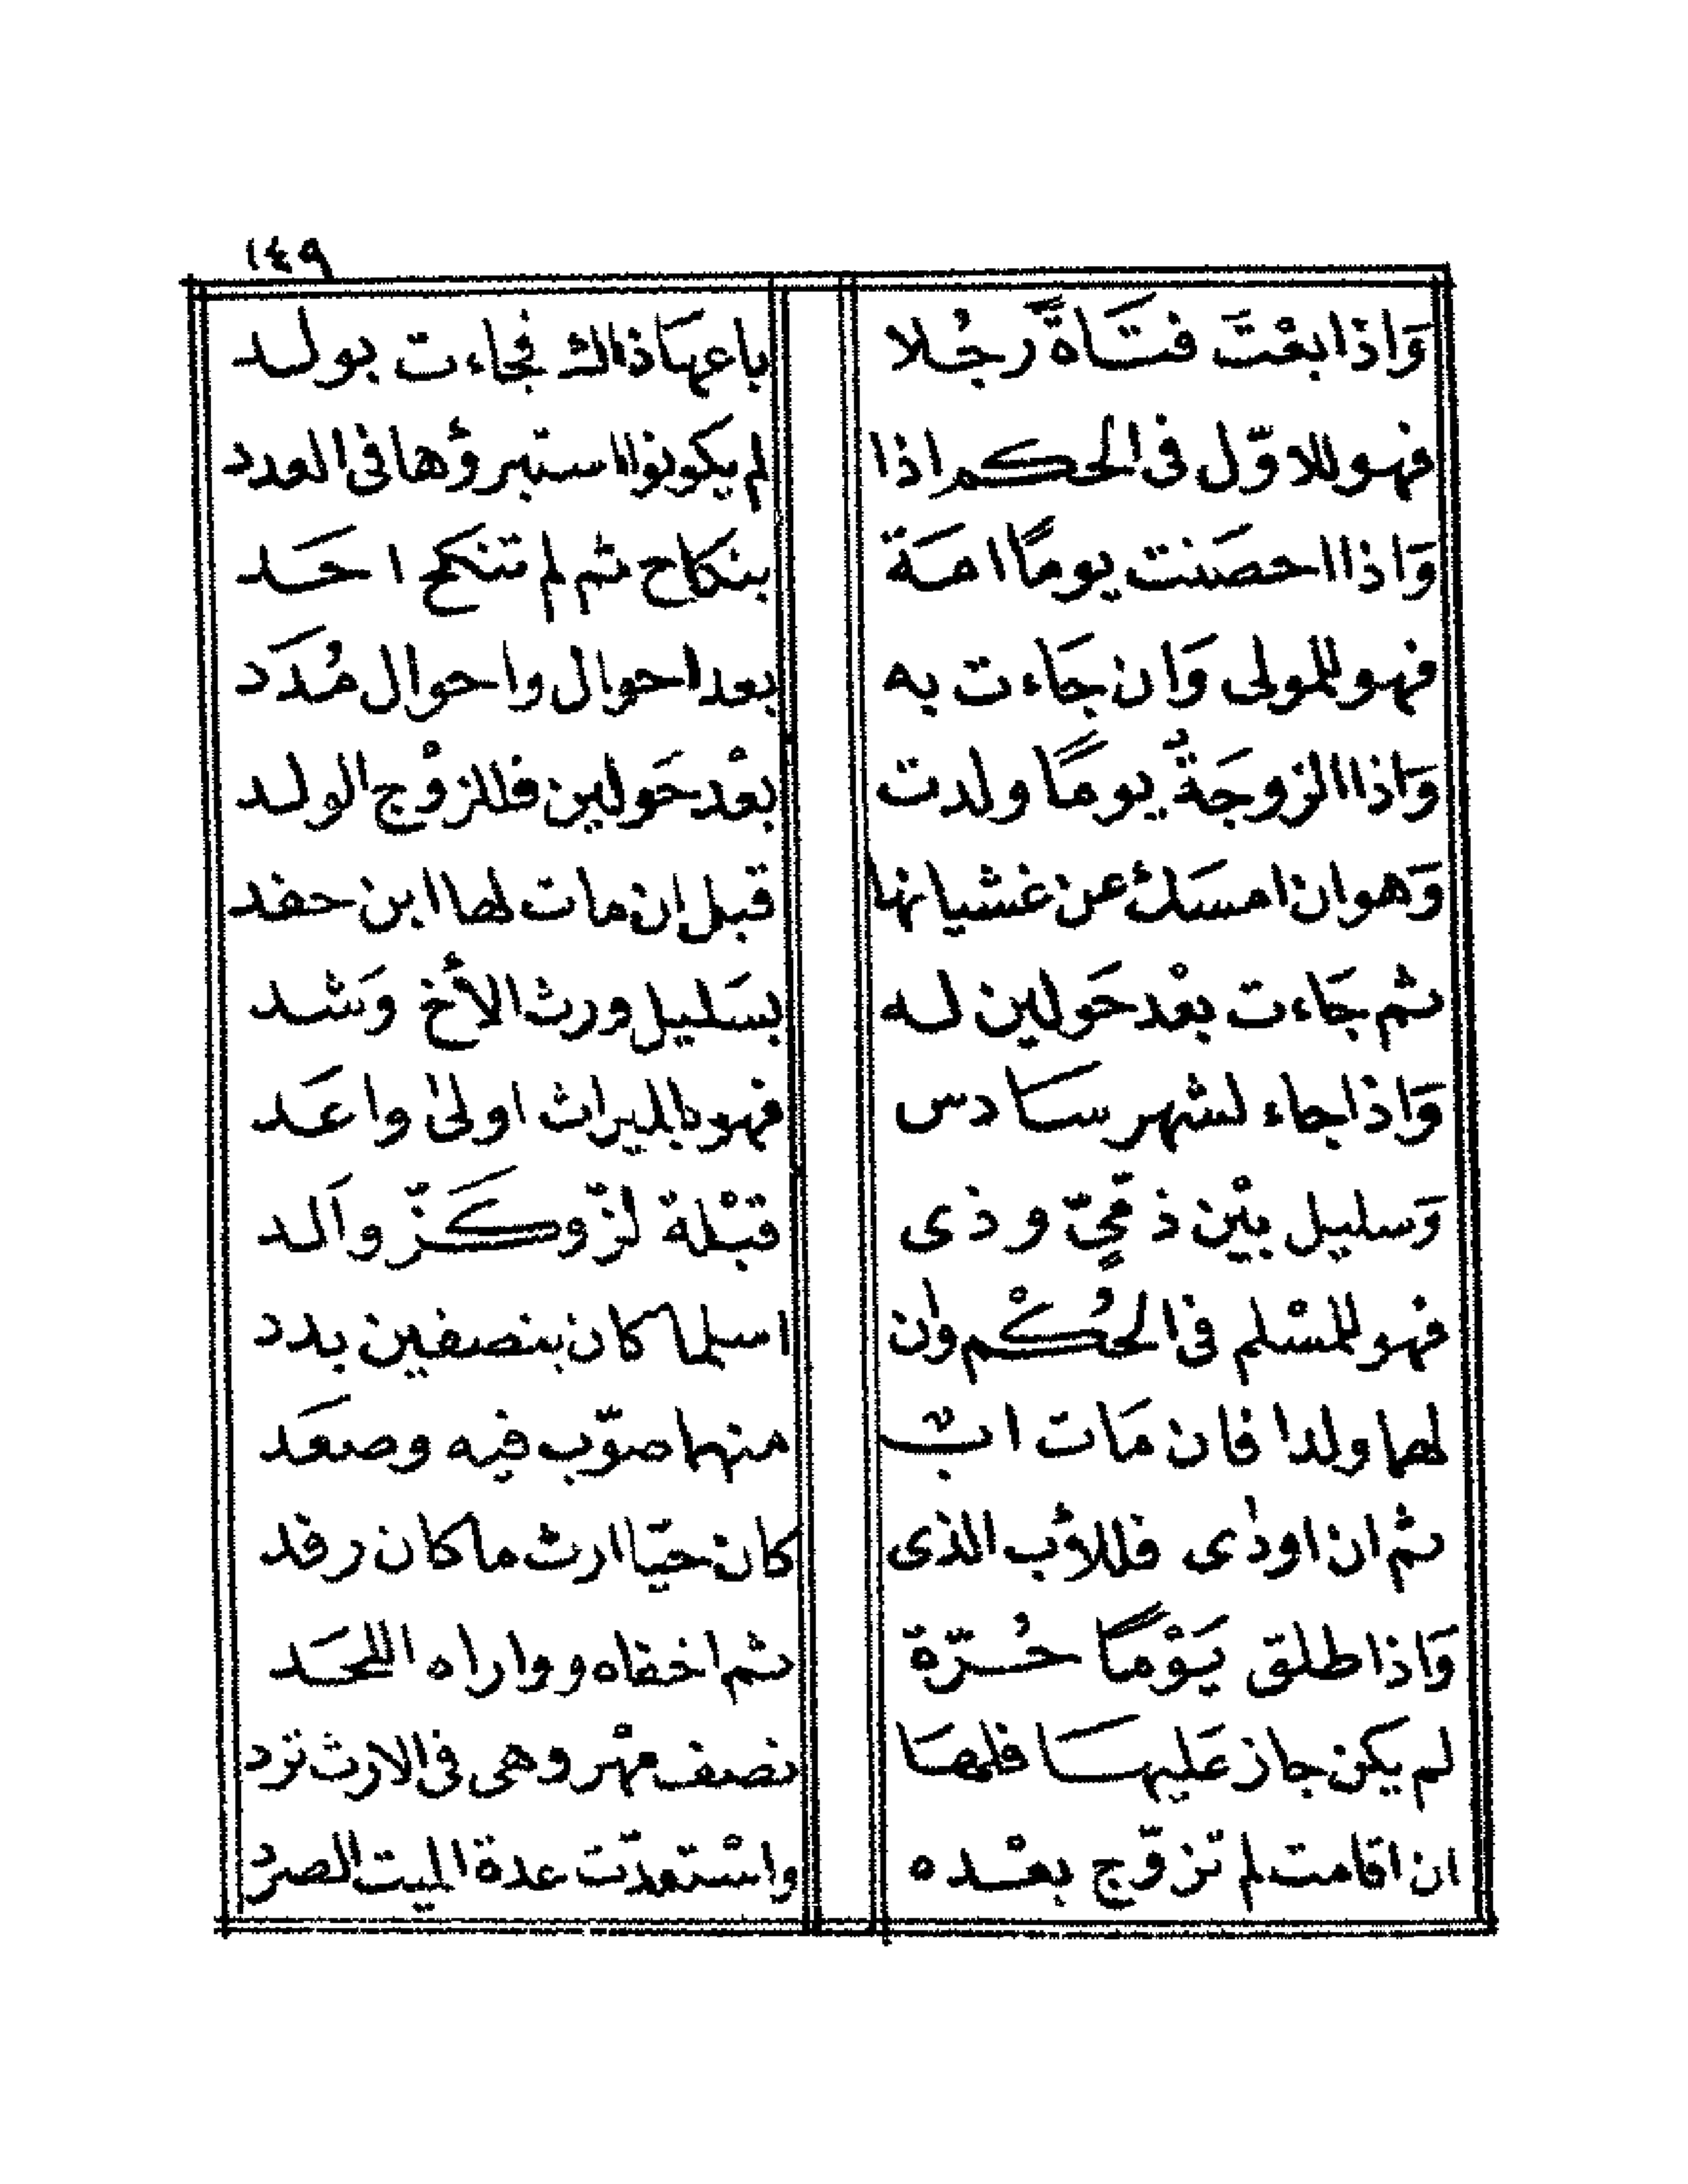 ١٤٩
وَاذا بعْتَ فتَاةً رجُلا باعهَا ذاك فجاءت بولد
فهو للاوّل فى الحكم اذا لم يكونوا استبرؤها فى العدد
وَاذا احصَنت يومًا امَة بنكاح ثم لم تنكح احَد
فهو للمولى وَان جَاءت به بعد احوال واحوال مُدَد
وَاذا الزوجَةُ يومًا ولدت بعْد حَولين فللزوْج الولد
وَهو ان امسَك عن غشيانها قبل ان مات لها ابن حفد
ثم جَاءت بعْد حَولين له بسَليل ورث الأخ وَشد
وَاذا جاء لشهر سَادس فهو بالميراث اولىٰ واعَد
وَسليل بيْن ذمّيّ وذى قبْلة لزّ وكَزّ واَلد
فهو للمسْلم فى الحُكْم وان اسلما كان بنصفين بدد
لهما ولدا فان مَات ابٌ منهما صوّب فيه وصعَد
ثم ان اوذى فللأب الذى كان حيّا ارث ما كان رفد
وَاذا طلق يَوْمًا حُرّة ثم اخفاه وواراه اللحَد
لم يكن جاز عَليهَا فلهَا نصف مهْر وهى فى الارث ترد
ان اقامت لم تزوّج بعْده واسْتعدّت عدة الميت الصرد